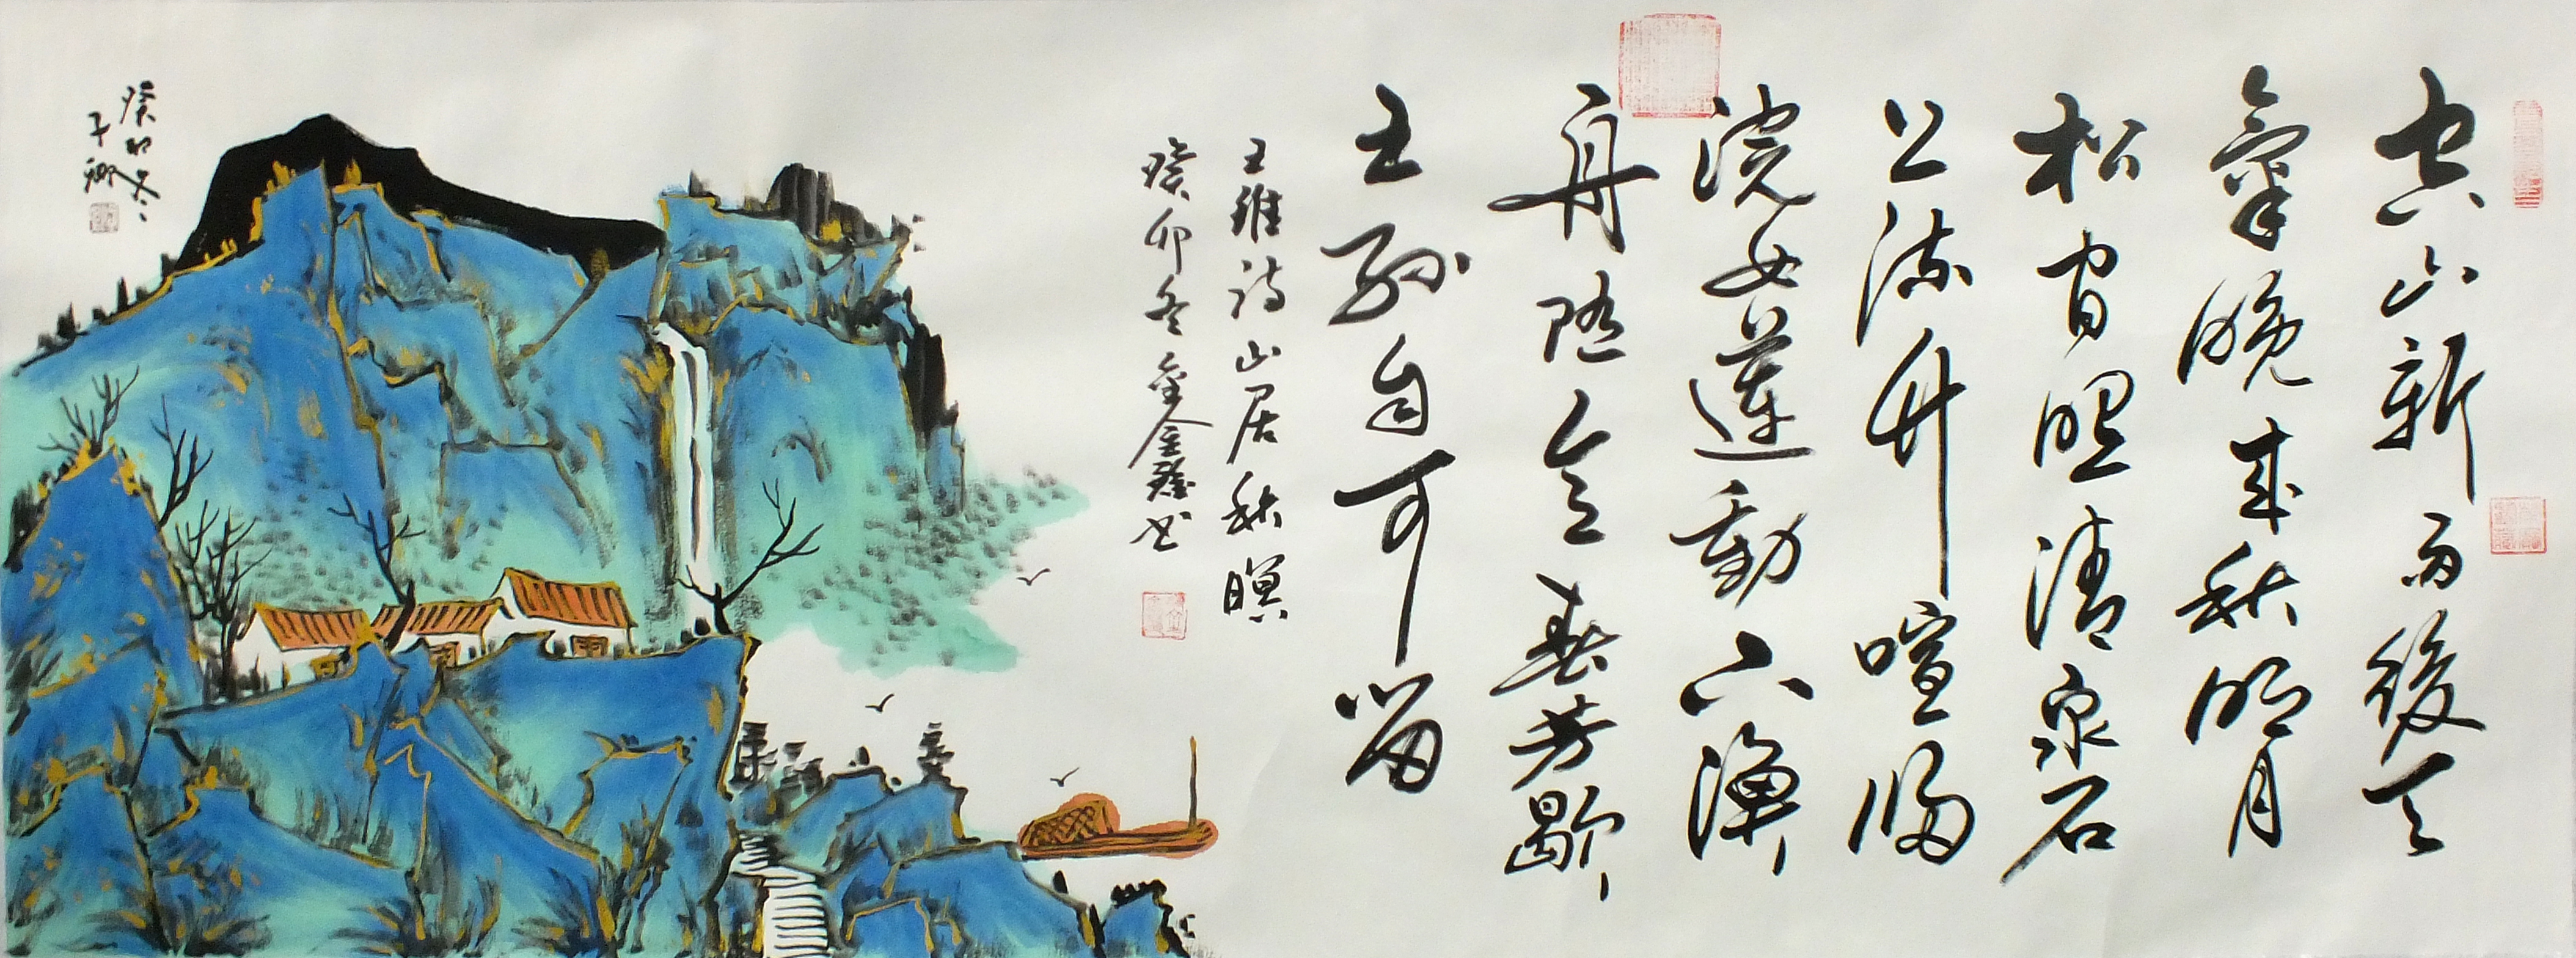 空山新雨後天
氣晚來秋明月
松間照清泉石
上流竹喧歸
浣女蓮動下漁
舟隨意春芳歇
王孫自可留
王維詩山居秋暝
癸卯冬書
癸卯冬
子卿